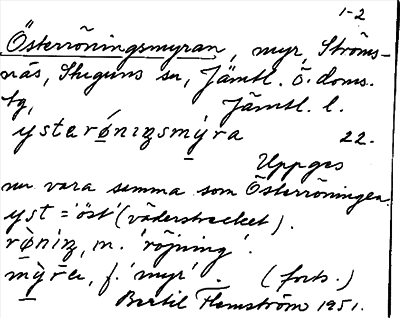 1-2
Österröningsmyran, myr, Ströms-
näs, Stuguns sn, Jämtl. ö. doms.
tg, Jämtl. l.
ysterǿniŋsmýra 22.
Uppges
nu vara samma som Österröningen.
yst = 'öst' (väderstrecket).
rø̀niŋ, m. 'röjning'.
mỳra, f. 'myr'. (forts.)
Bertil Flemström 1951.